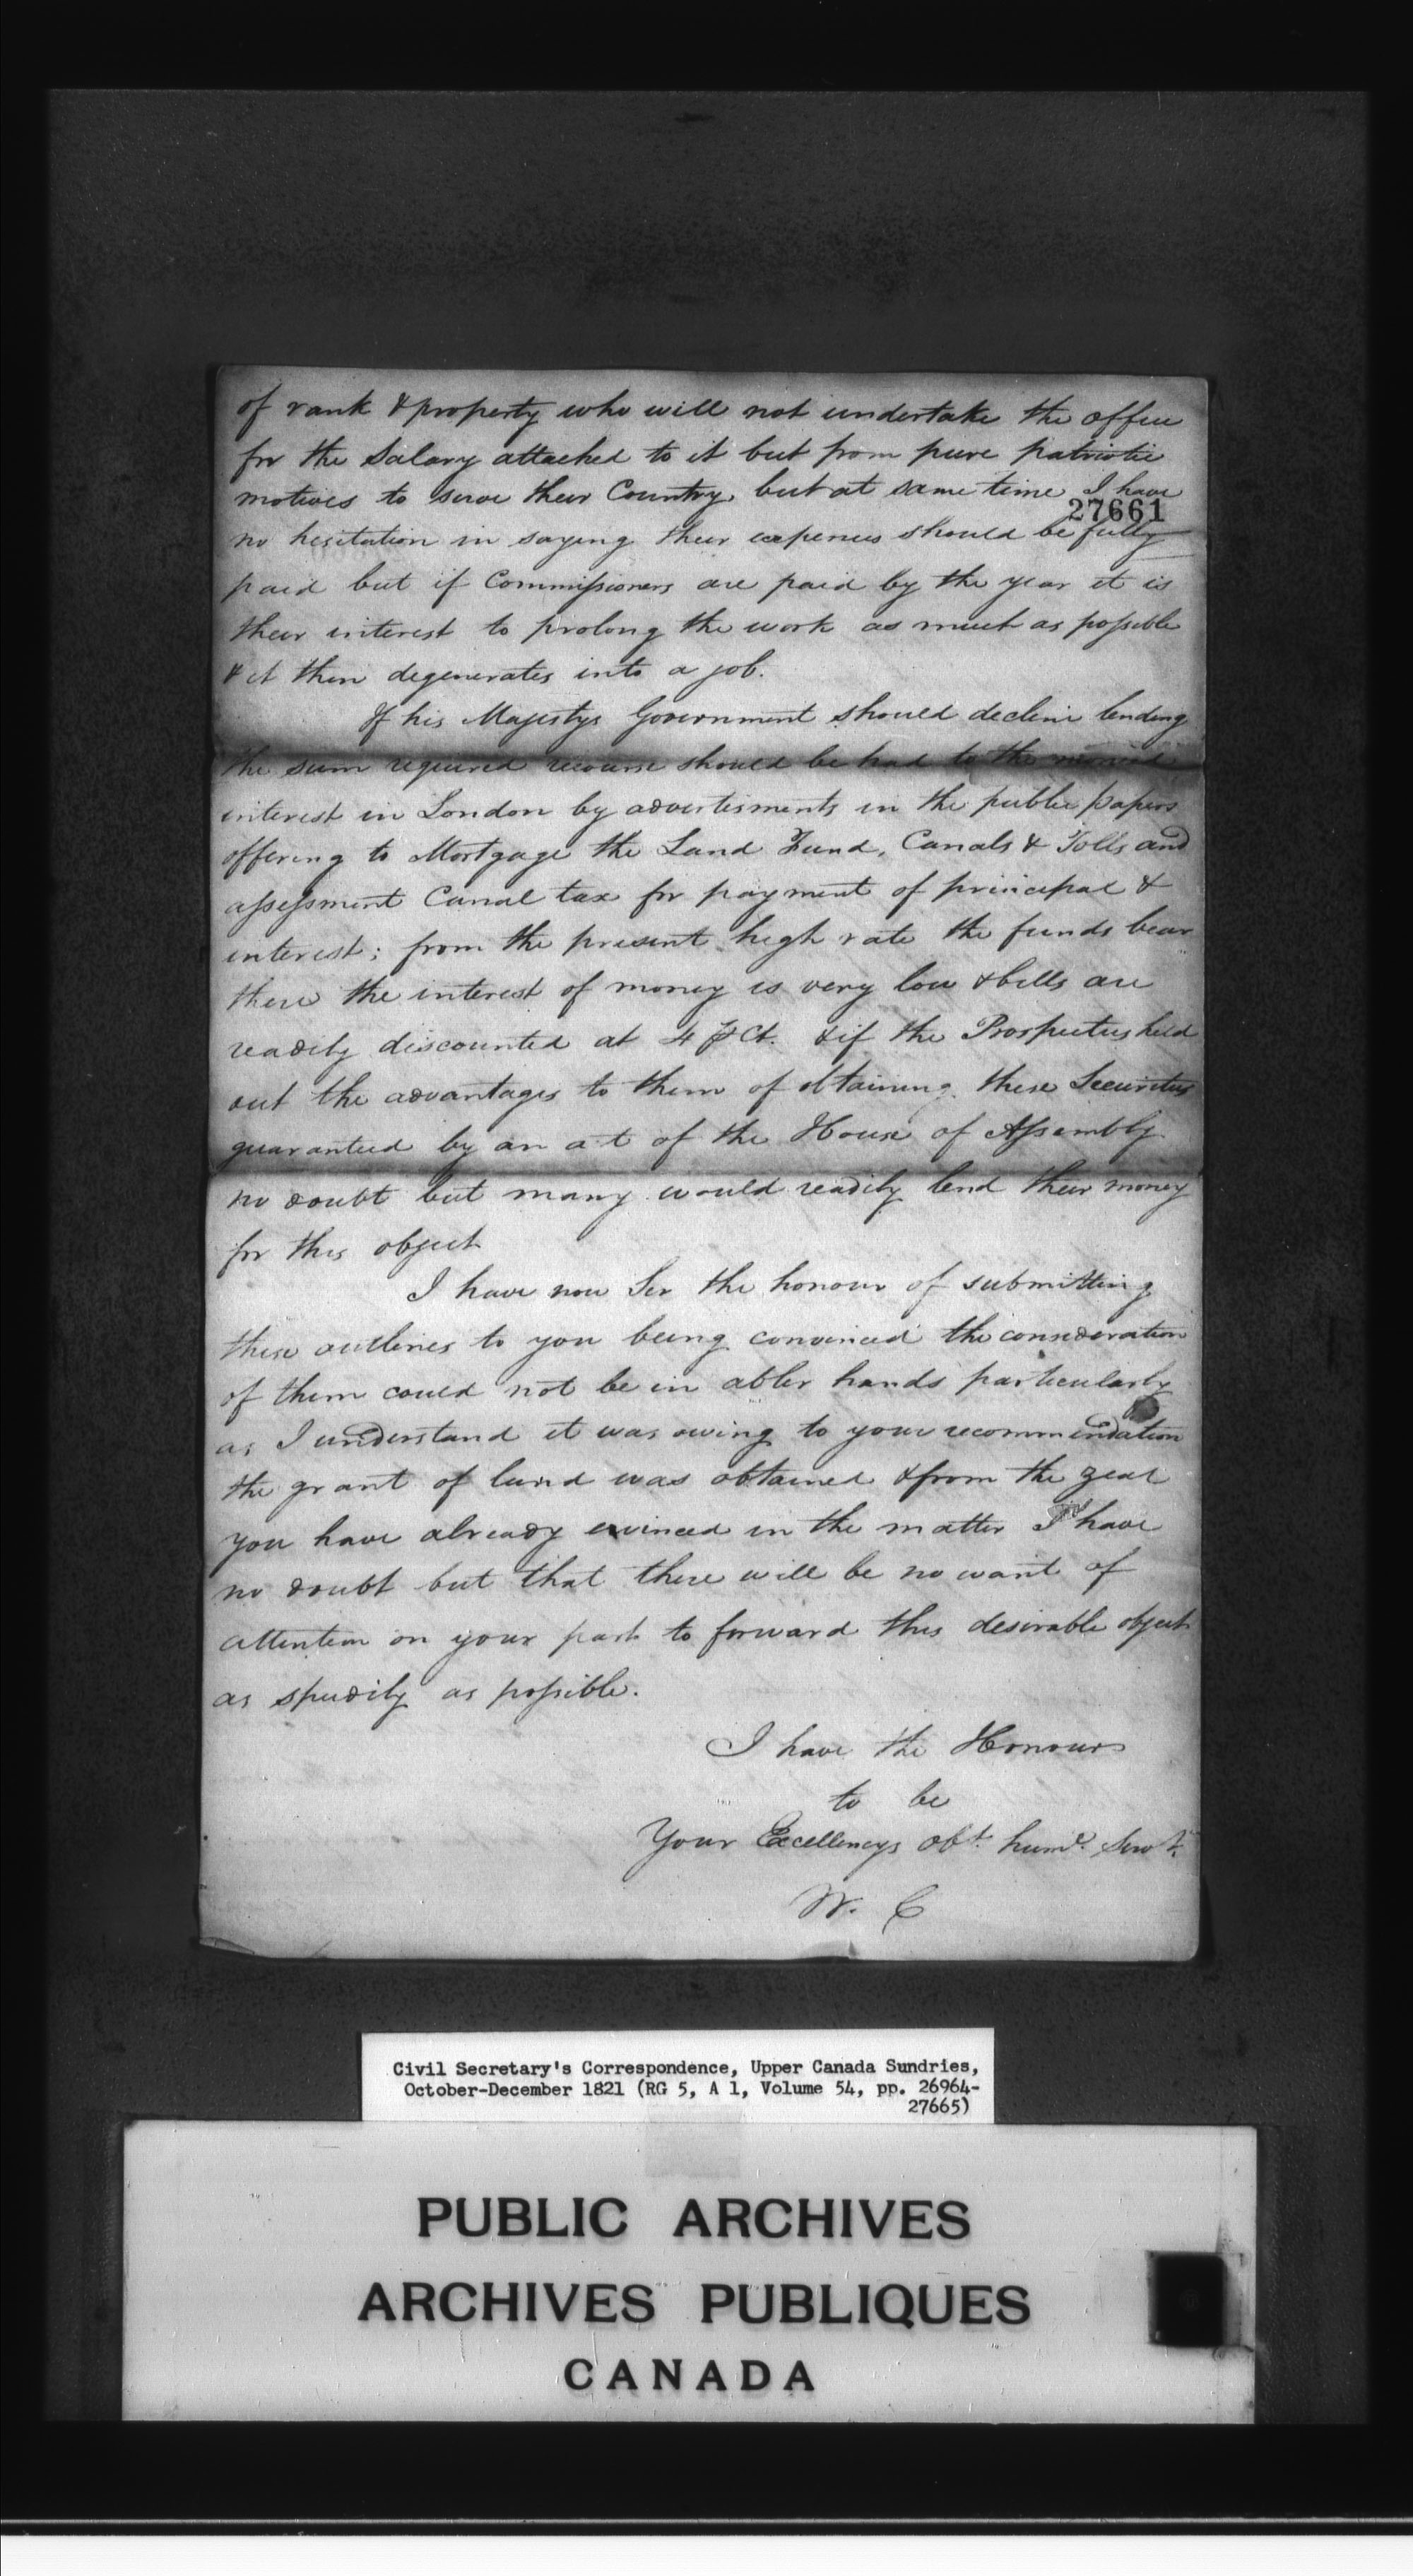 of rank & property who will not undertake the office
for the Salary attached to it but from pure patriotic
motives to serve their Country, but at same time I have
27661
no hesitation in saying their expences should be fully
paid but if Commissioners are paid by the year it is
their interest to prolong the work as much as possible
& it then degenerates into a job.
If his Majestys Government should decline lending
the sum required recourse should be had to the monied
interest in London by advertisments in the public papers
offering to Mortgage the Land Fund, Canals & Tolls and
assessment Canal tax for payment of principal &
interest; from the present high rate the funds bear
there the interest of money is very low & bills are
readily discounted at 4 P Ct. & if the Prospectus held
out the advantages to them of obtaining these Securities
guaranteed by an act of the House of Assembly
no doubt but many would readily lend their money
for this object
I have now Sir the honour of submitting
these outlines to you being convinced the consideration
of them could not be in abler hands particularly
as I understand it was owing to your recommendation
the grant of land was obtained & from the zeal
you have already evinced in the matter I have
no doubt but that there will be no want of
attention on your part to forward this desirable object
as speedily as possible.
I have the Honour
to be
Your Excellencys obt. humb. Servt.
W. C
Civil Secretary's Correspondence, Upper Canada Sundries,
October-December 1821 (RG 5, A 1, Volume 54, pp. 26964-
27665)
PUBLIC ARCHIVES
ARCHIVES PUBLIQUES
CANADA